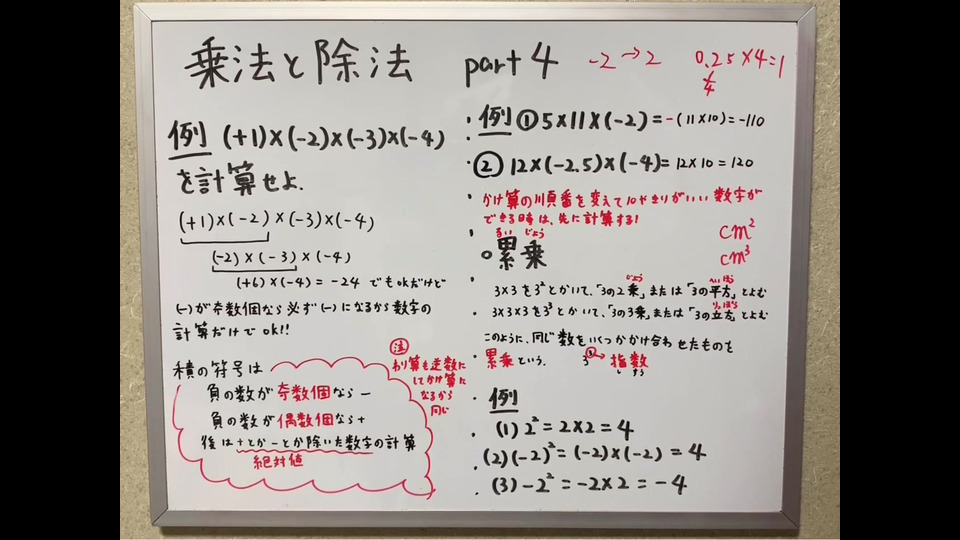 乗法と除法 part 4
-2 → 2
0.25×4=1
1/4
例 (+1)×(-2)×(-3)×(-4)
を計算せよ.
(+1)×(-2)×(-3)×(-4)
(-2)×(-3)×(-4)
(+6)×(-4)=-24 でもokだけど
(-)が奇数個なら必ず(-)になるから数字の
計算だけでok!!
積の符号は
負の数が奇数個なら-
負の数が偶数個なら+
後は+とか-とか除いた数字の計算
絶対値
注
わり算も逆数に
してかけ算に
なるから
同じ
例 ① 5×11×(-2)=-(11×10)=-110
② 12×(-2.5)×(-4)=12×10=120
かけ算の順番を変えて10やきりがいい数字が
できる時は、先に計算する!
cm²
cm³
るい じょう
○累乗
じょう へいほう
3×3を3²とかいて、「3の2乗」または「3の平方」とよむ
りっぽう
3×3×3を3³とかいて、「3の3乗」または「3の立方」とよむ
このように、同じ数をいくつかかけ合わせたものを
累乗という. 3② → 指数
し すう
例
(1) 2²=2×2=4
(2) (-2)²=(-2)×(-2)=4
(3) -2²=-2×2=-4